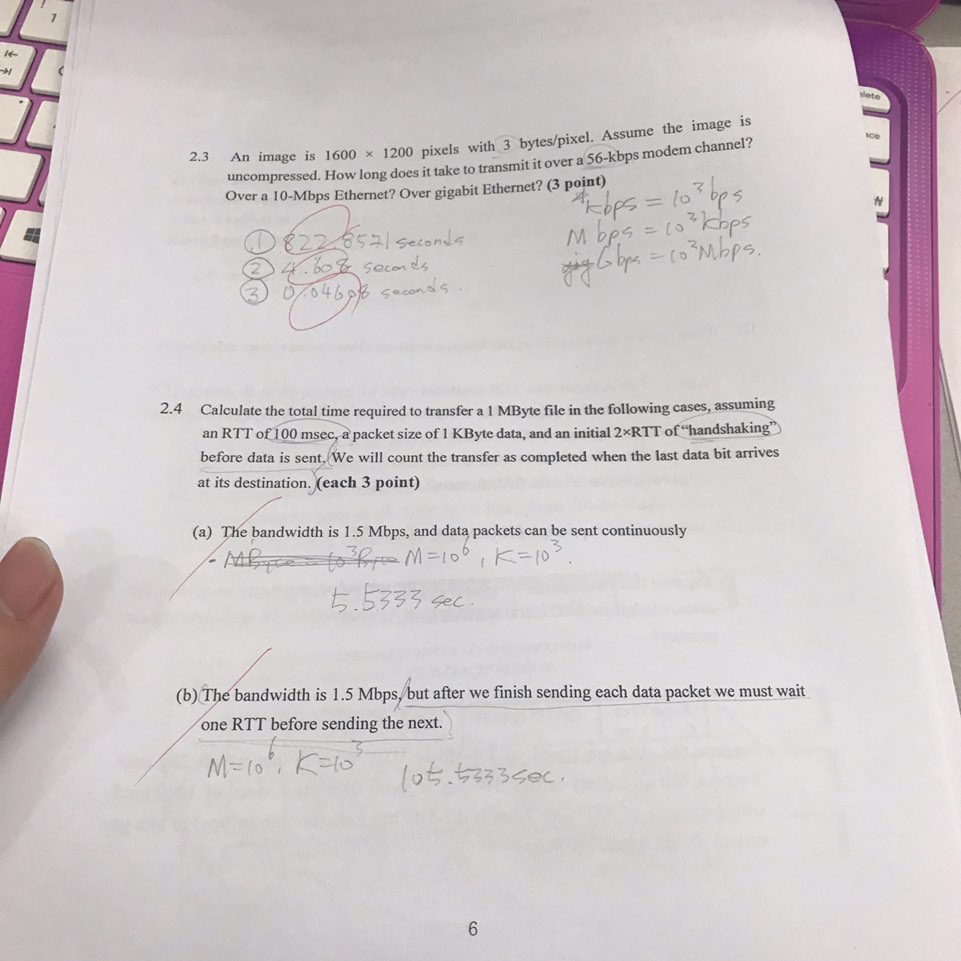 2.3 An image is 1600 × 1200 pixels with 3 bytes/pixel. Assume the image is
uncompressed. How long does it take to transmit it over a 56-kbps modem channel?
Over a 10-Mbps Ethernet? Over gigabit Ethernet? (3 point)
kbps = 10³ bps
Mbps = 10³ kbps
Gbps = 10³ Mbps.
① 822.8571 seconds
② 4.608 seconds
③ 0.04608 seconds.
2.4 Calculate the total time required to transfer a 1 MByte file in the following cases, assuming
an RTT of 100 msec, a packet size of 1 KByte data, and an initial 2×RTT of “handshaking”
before data is sent. We will count the transfer as completed when the last data bit arrives
at its destination. (each 3 point)
(a) The bandwidth is 1.5 Mbps, and data packets can be sent continuously
- M=10⁶, K=10³.
5.5333 sec.
(b) The bandwidth is 1.5 Mbps, but after we finish sending each data packet we must wait
one RTT before sending the next.
M=10⁶, K=10³ 105.5333 sec.
6
1
elete
ice
₩